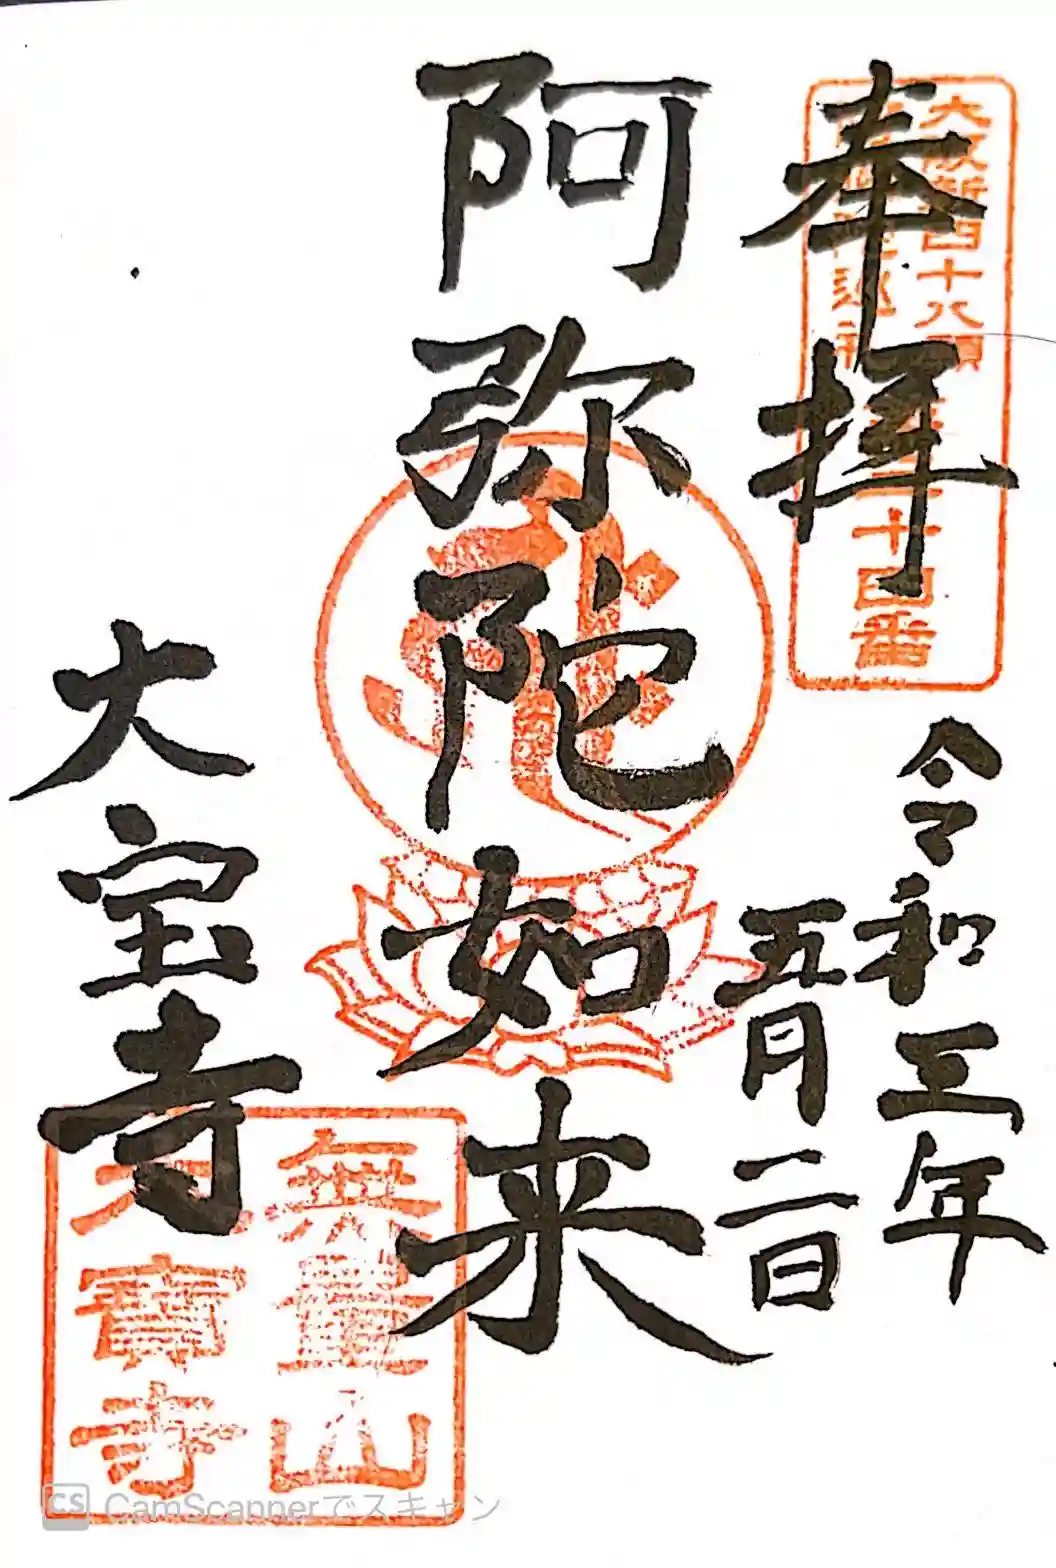 奉拝
大阪新四十八願
第三十四番
令和三年
五月二日
阿弥陀如来
大宝寺
無量山
大寶寺
CS CamScannerでスキャン